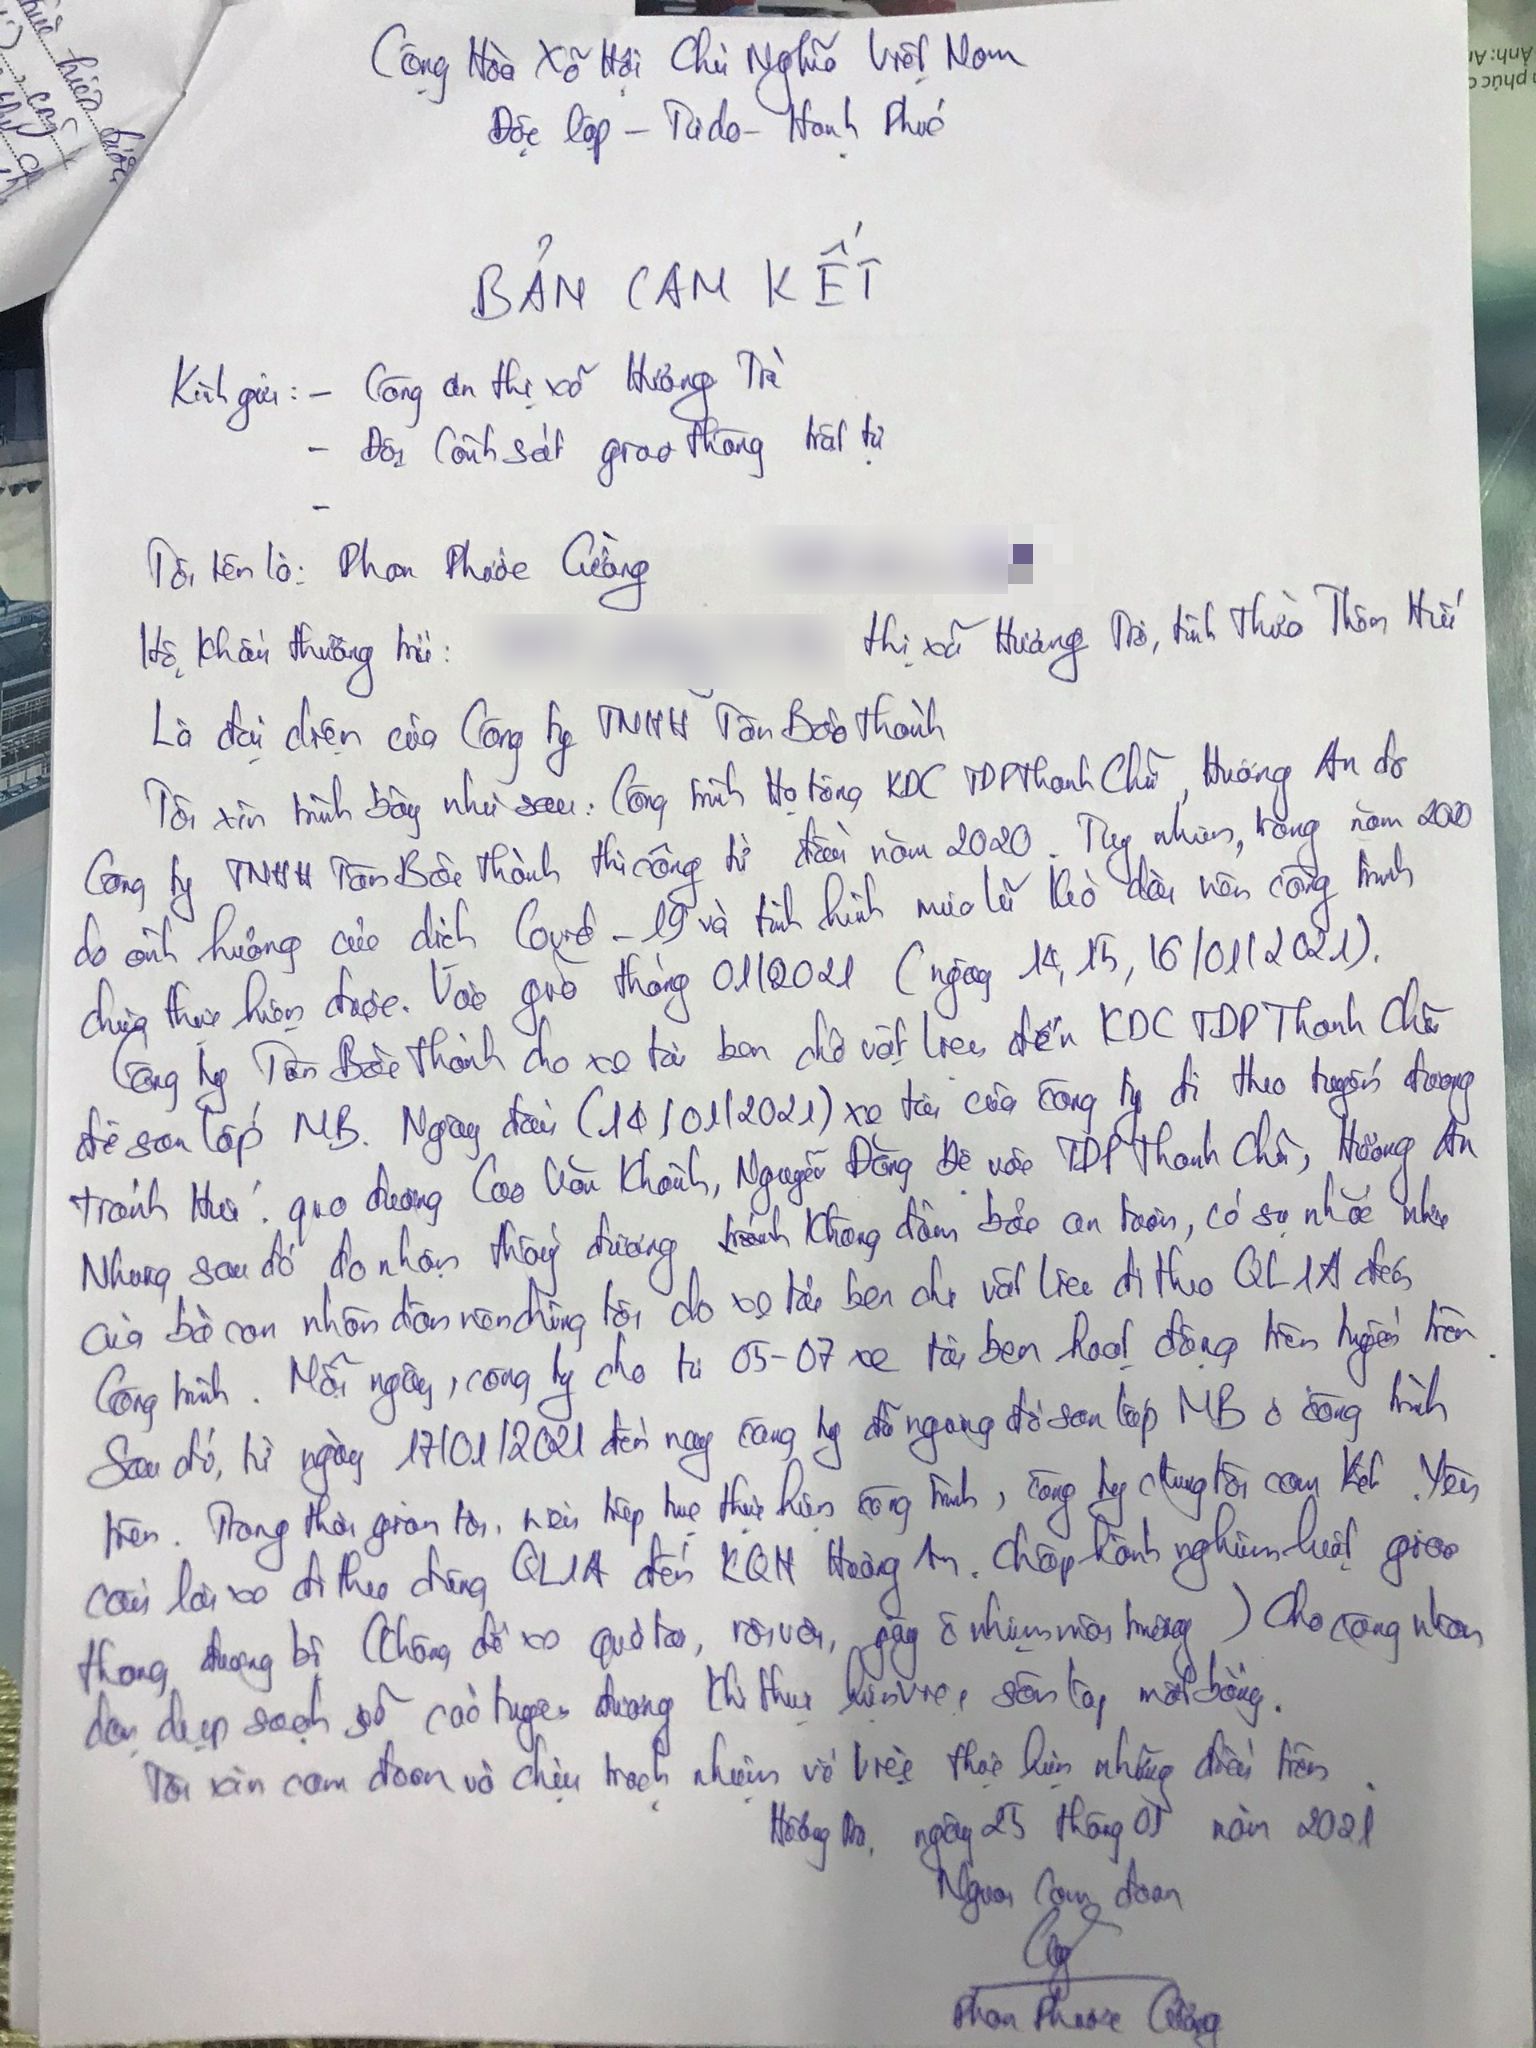 Cộng Hòa Xã Hội Chủ Nghĩa Việt Nam
Độc lập – Tự do – Hạnh Phúc
BẢN CAM KẾT
Kính gửi: – Công an thị xã Hương Trà
– Đội Cảnh sát giao thông trật tự
–
Tôi tên là: Phan Phước Cường
Hộ khẩu thường trú: thị xã Hương Trà, tỉnh Thừa Thiên Huế
Là đại diện của Công ty TNHH Tân Bảo Thành
Tôi xin trình bày như sau: Công trình Hạ tầng KDC TDP Thanh Chữ, Hương An do
Công ty TNHH Tân Bảo Thành thi công từ đầu năm 2020. Tuy nhiên, trong năm 2020
do ảnh hưởng của dịch Covid – 19 và tình hình mưa lũ kéo dài nên công trình
chưa thực hiện được. Vào giữa tháng 01/2021 (ngày 14, 15, 16/01/2021).
Công ty Tân Bảo Thành cho xe tải ben chở vật liệu đến KDC TDP Thanh Chữ
để san lấp MB. Ngày đầu (14/01/2021) xe tải của công ty đi theo tuyến đường
tránh Huế. qua đường Cao Văn Khánh, Nguyễn Đăng Đệ vào TDP Thanh Chữ, Hương An
Nhưng sau đó do nhận thấy đường không đảm bảo an toàn, có sự nhắc nhở
của bà con nhân dân nên chúng tôi cho xe tải ben chở vật liệu đi theo QL1A đến
Công trình. Mỗi ngày, công ty cho từ 05-07 xe tải ben hoạt động trên tuyến trên.
Sau đó, từ ngày 17/01/2021 đến nay công ty đã ngưng đổ san lấp MB ở công trình
trên. Trong thời gian tới, nếu tiếp tục thực hiện công trình, công ty chúng tôi cam kết. Yêu
cầu lái xe đi theo đúng QL1A đến KQH Hương An. Chấp hành nghiêm luật giao
thông đường bộ (Không để xe quá tải, rơi vãi, gây ô nhiễm môi trường) Cho công nhân
dọn dẹp sạch sẽ các tuyến đường khi thực hiện việc san lấp mặt bằng.
Tôi xin cam đoan và chịu trách nhiệm về việc thực hiện những điều trên.
Hương Trà, ngày 25 tháng 01 năm 2021
Người Cam đoan
Phan Phước Cường